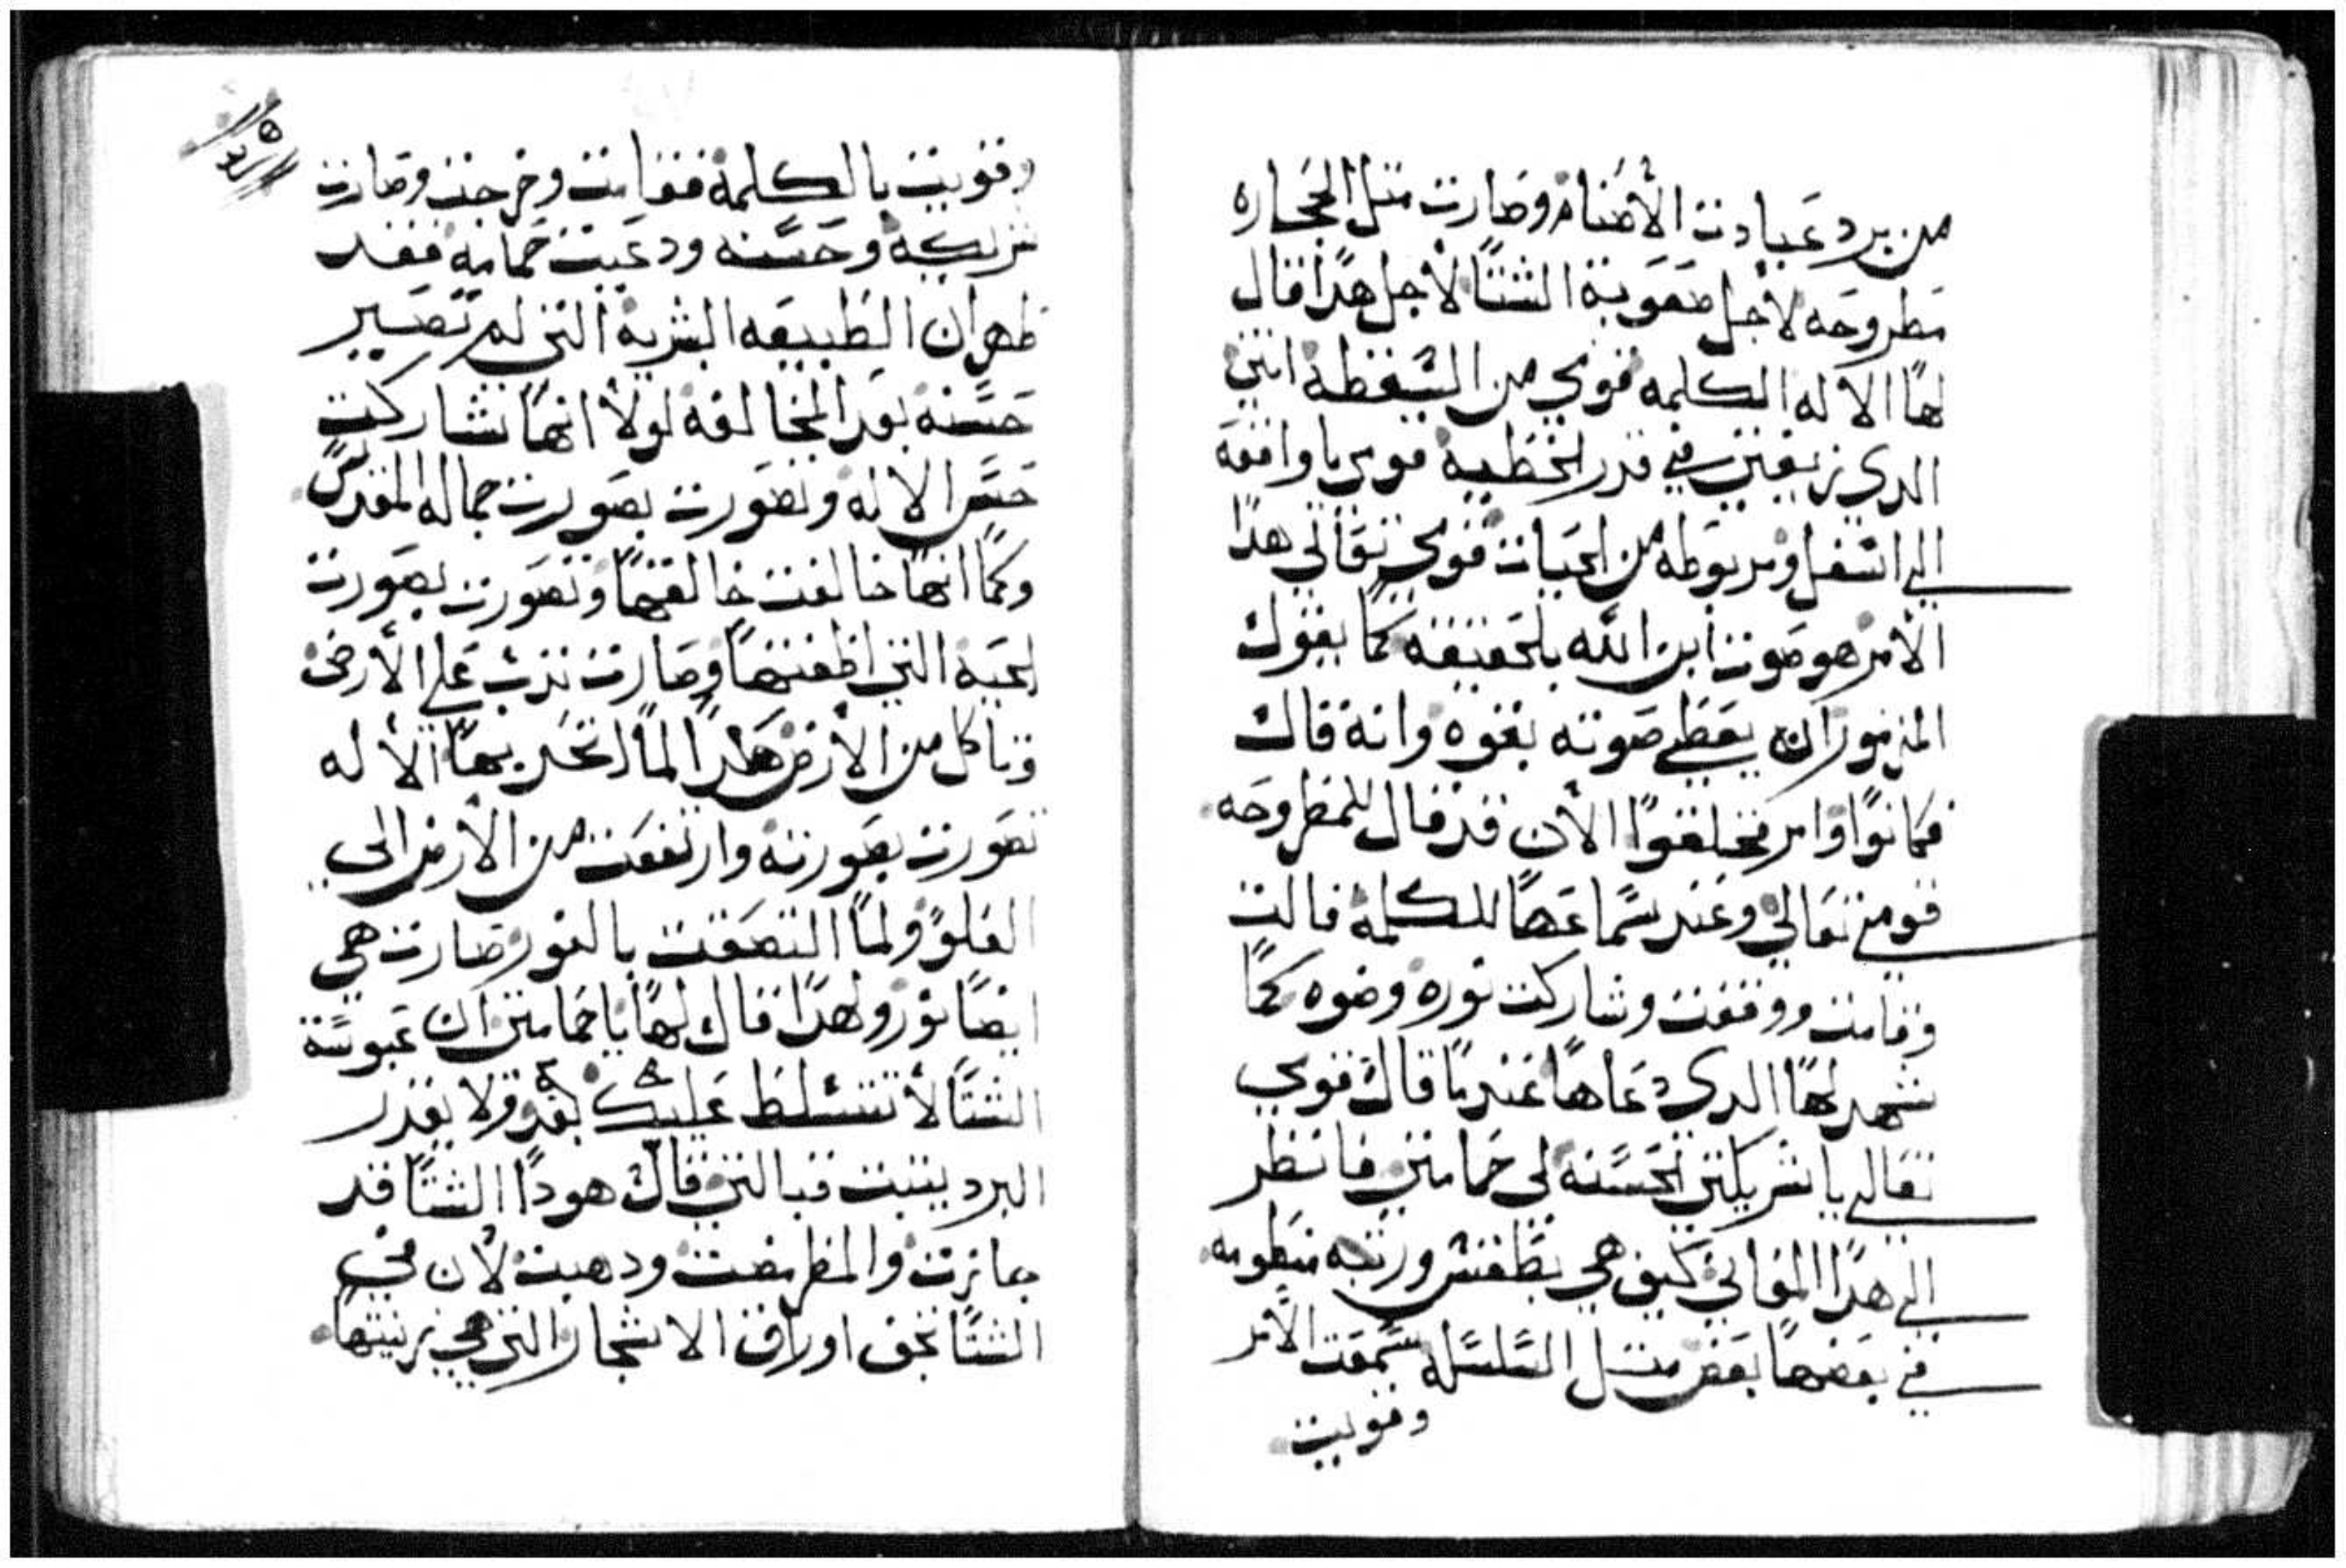 من برد عبادت الأصنام وصارت متل الحجاره
مطروحه لأجل صعوبة الشتا لأجل هدا قال
لها الاله الكلمه قومي من السقطة انتي
الدي زلقتي في قدر الخطية قومي يا واقفه
الي اسفل ومربوطه من الحيات قومي تعالي هدا
الأمر هو صوت ابن الله بلحقيقه كما يقول
المزمور ان يعطي صوته بقوه وانه قال
فكانوا وامر فخلقوا الأن قد قال للمطروحه
قومي تعالي وعند سماعها للكلمة قالت
وقامت ووقفت وشاركت نوره وضوه كما
شهد لها الدي دعاها عندما قال قومي
تعالي يا شريكتي الحسنه لي حمامتي فانظر
الي هدا المعاني كيف هي بطقس ورتبه منظومه
في بعضها بعض متل السلسله سمعت الأمر
وقويت
وقويت بالكلمة فقامت وخرجت وصارت
شريكة وحسنه ودعيت حمامه فقد
ظهر ان الطبيعه البشرية التي لم تصير
حسنه بعد المخالفه لولا انها تشاركت
حسن الاله وتصورت بصورت جماله المقدس
وكما انها خالفت خالقها وتصورت بصورت
الحية التي اطغتها وصارت تدب علي الأرض
وتاكل من الأرض هكدا لما اتحد بها الأله
تصورت بصورته وارتفعت من الأرض الي
العلو ولما التصقت بالنور صارت هي
ايضا نور ولهدا قال لها يا حمامتي ان عبوسة
الشتا لأ تتسلط عليك بعد ولا يقدر
البرد يتبت قبالتي قال هودا الشتا قد
جازت والمطر مضت ودهبت لأن في
الشتا تجف اوراق الاشجار التي هي زينتها